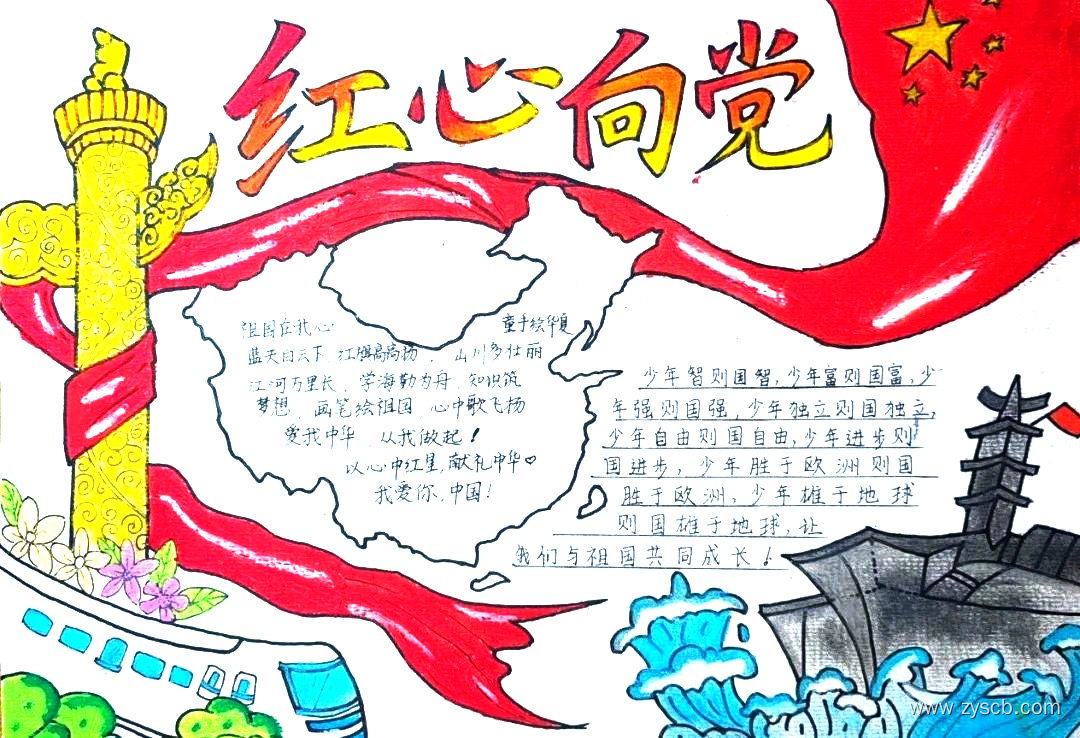 红心向党
祖国在我心 童手绘华夏
蓝天白云下，红旗高高扬，山川多壮丽
江河万里长，学海勤为舟，知识筑
梦想，画笔绘祖国，心中歌飞扬
爱我中华，从我做起！
以心中红星，献礼中华♡
我爱你，中国！
少年智则国智，少年富则国富，少
年强则国强，少年独立则国独立，
少年自由则国自由，少年进步则
国进步，少年胜于欧洲则国
胜于欧洲，少年雄于地球
则国雄于地球，让
我们与祖国共同成长！
www.zyscb.com